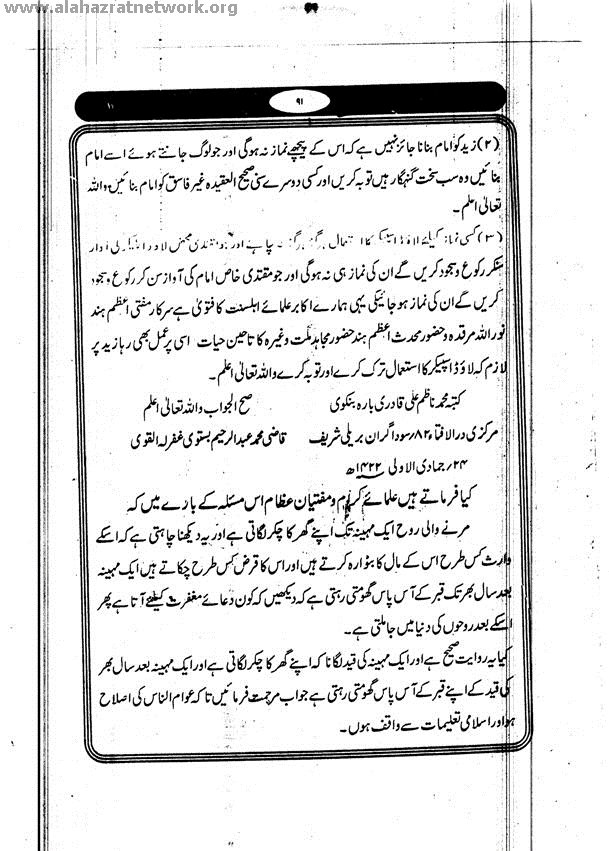 www.alahazratnetwork.org
۹۱
(۲) زید کو امام بنانا جائز نہیں ہے کہ اس کے پیچھے نماز نہ ہوگی اور جو لوگ جانتے ہوئے اسے امام
بنائیں وہ سب سخت گنہگار ہیں توبہ کریں اور کسی دوسرے سنی صحیح العقیدہ غیر فاسق کو امام بنائیں واللہ
تعالیٰ اعلم۔
(۳) کسی نماز کیلئے لاؤڈ اسپیکر کا استعمال ہرگز ہرگز نہ چاہئے اور جو مقتدی محض لاؤڈ اسپیکر کی آواز
سنکر رکوع و سجود کریں گے ان کی نماز ہی نہ ہوگی اور جو مقتدی خاص امام کی آواز سن کر رکوع و سجود
کریں گے ان کی نماز ہو جائیگی یہی ہمارے اکابر علمائے اہلسنت کا فتویٰ ہے سرکار مفتی اعظم ہند
نور اللہ مرقدہ و حضور محدث اعظم ہند حضور مجاہد ملت وغیرہ کا تاحین حیات اسی پر عمل بھی رہا زید پر
لازم کہ لاؤڈ اسپیکر کا استعمال ترک کرے اور توبہ کرے واللہ تعالیٰ اعلم۔
کتبہ محمد ناظم علی قادری بارہ بنکوی صح الجواب واللہ تعالیٰ اعلم
مرکزی درالافتاء ۸۲؍ سوداگران بریلی شریف قاضی محمد عبدالرحیم بستوی غفرلہ القوی
۲۴؍ جمادی الاولی ۱۴۲۲ھ
کیا فرماتے ہیں علمائے کرام و مفتیان عظام اس مسئلہ کے بارے میں کہ
مرنے والی روح ایک مہینہ تک اپنے گھر کا چکر لگاتی ہے اور یہ دیکھنا چاہتی ہے کہ اسکے
وارث کس طرح اس کے مال کا بٹوارہ کرتے ہیں اور اس کا قرض کس طرح چکاتے ہیں ایک مہینہ
بعد سال بھر تک قبر کے آس پاس گھومتی رہتی ہے کہ دیکھیں کہ کون دعائے مغفرت کیلئے آتا ہے پھر
اسکے بعد روحوں کی دنیا میں جا ملتی ہے۔
کیا یہ روایت صحیح ہے اور ایک مہینہ کی قید لگانا کہ اپنے گھر کا چکر لگاتی ہے اور ایک مہینہ بعد سال بھر
کی قید کے اپنے قبر کے آس پاس گھومتی رہتی ہے جواب مرحمت فرمائیں تاکہ عوام الناس کی اصلاح
ہو اور اسلامی تعلیمات سے واقف ہوں۔